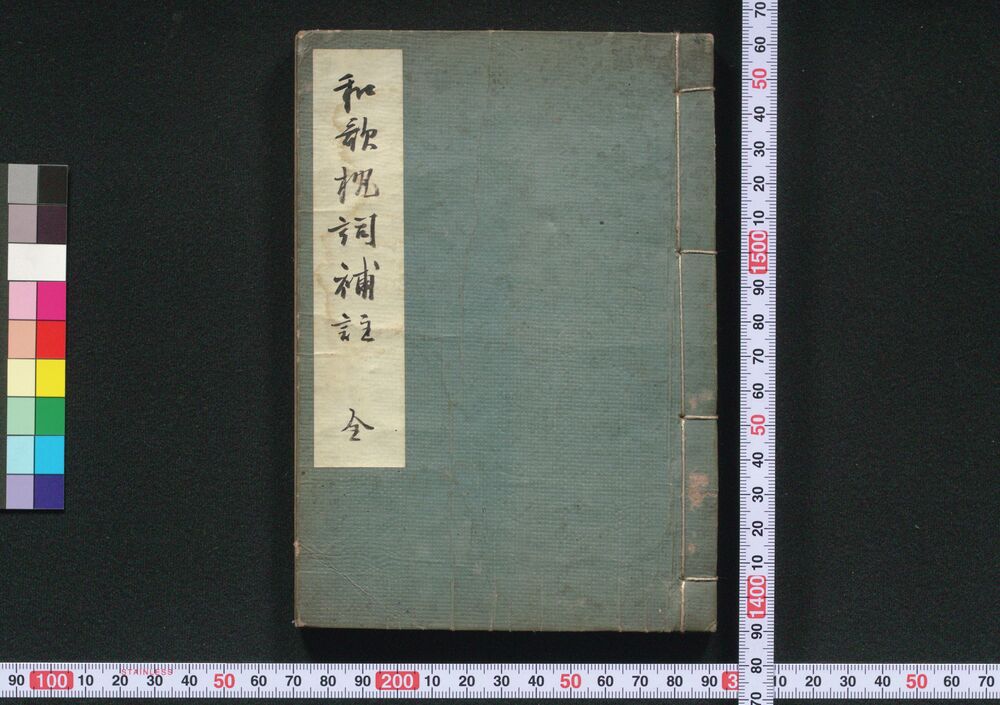 和歌枕詞補註 全
70
60
50
40
30
20
10
1500
90
80
70
60
50
40
30
20
10
1400
90
80
70
90 100 10 20 30 40 50 60 70 80 90 200 10 20 30 40 50 60 70 80 90 3 10 20 30 40 50 60 70
STAINLESS